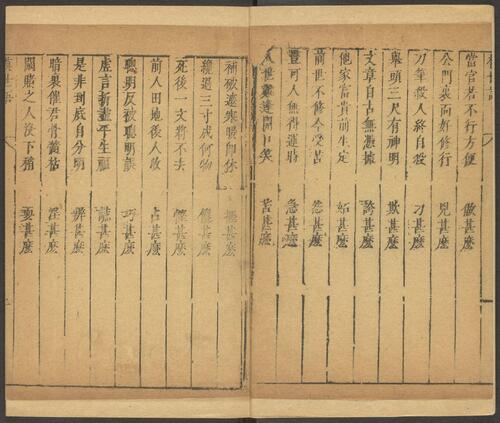 當官若不行方便 做甚麽
公門裏向好修行 兇甚麽
刀筆殺人終自殺 刁甚麽
舉頭三尺有神明 欺甚麽
文章自古無憑據 誇甚麽
他家富貴前生定 妬甚麽
前世不修今受苦 怨甚麽
豈可人無得運時 急甚麽
人世難逢開口笑 苦甚麽
補破遮寒暖即休 甚麽
纔過三寸成何物 饞甚麽
死後一文將不去 慳甚麽
前人田地後人收 占甚麽
聰明反被聰明誤 巧甚麽
虛言折盡平生福 謊甚麽
是非到底自分明 辯甚麽
暗裏催君骨髓枯 淫甚麽
賭之人沒下稍 耍甚麽
世語